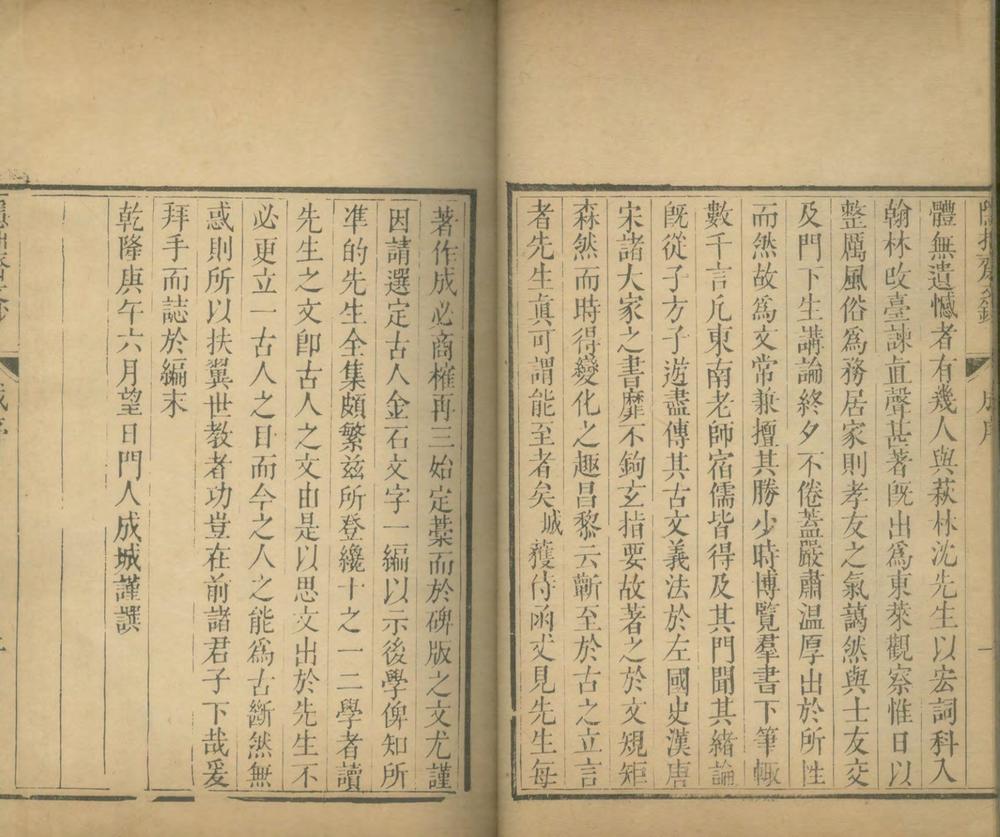 隱拙齋鈔
成序
一
體無遺憾者有幾人與萩林沈先生以宏詞科入
翰林改臺諫直聲甚著旣出爲東萊觀察惟日以
整厲風俗爲務居家則孝友之氣藹然與士友交
及門下生講論終夕不倦蓋嚴肅温厚出於所性
而然故爲文常兼擅其勝少時博覽羣書下筆輙
數千言凡東南老師宿儒皆得及其門聞其緒論
旣從子方子遊盡傳其古文義法於左國史漢唐
宋諸大家之書靡不鉤玄指要故著之於文規矩
森然而時得變化之趣昌黎云蘄至於古之立言
者先生眞可謂能至者矣城獲侍函丈見先生每
著作成必商榷再三始定藁而於碑版之文尤謹
因請選定古人金石文字一編以示後學俾知所
凖的先生全集頗繁兹所登纔十之一二學者讀
先生之文卽古人之文由是以思文出於先生不
必更立一古人之目而今之人之能爲古斷然無
惑則所以扶翼世教者功豈在前諸君子下哉爰
拜手而誌於編末
乾隆庚午六月望日門人成城謹譔